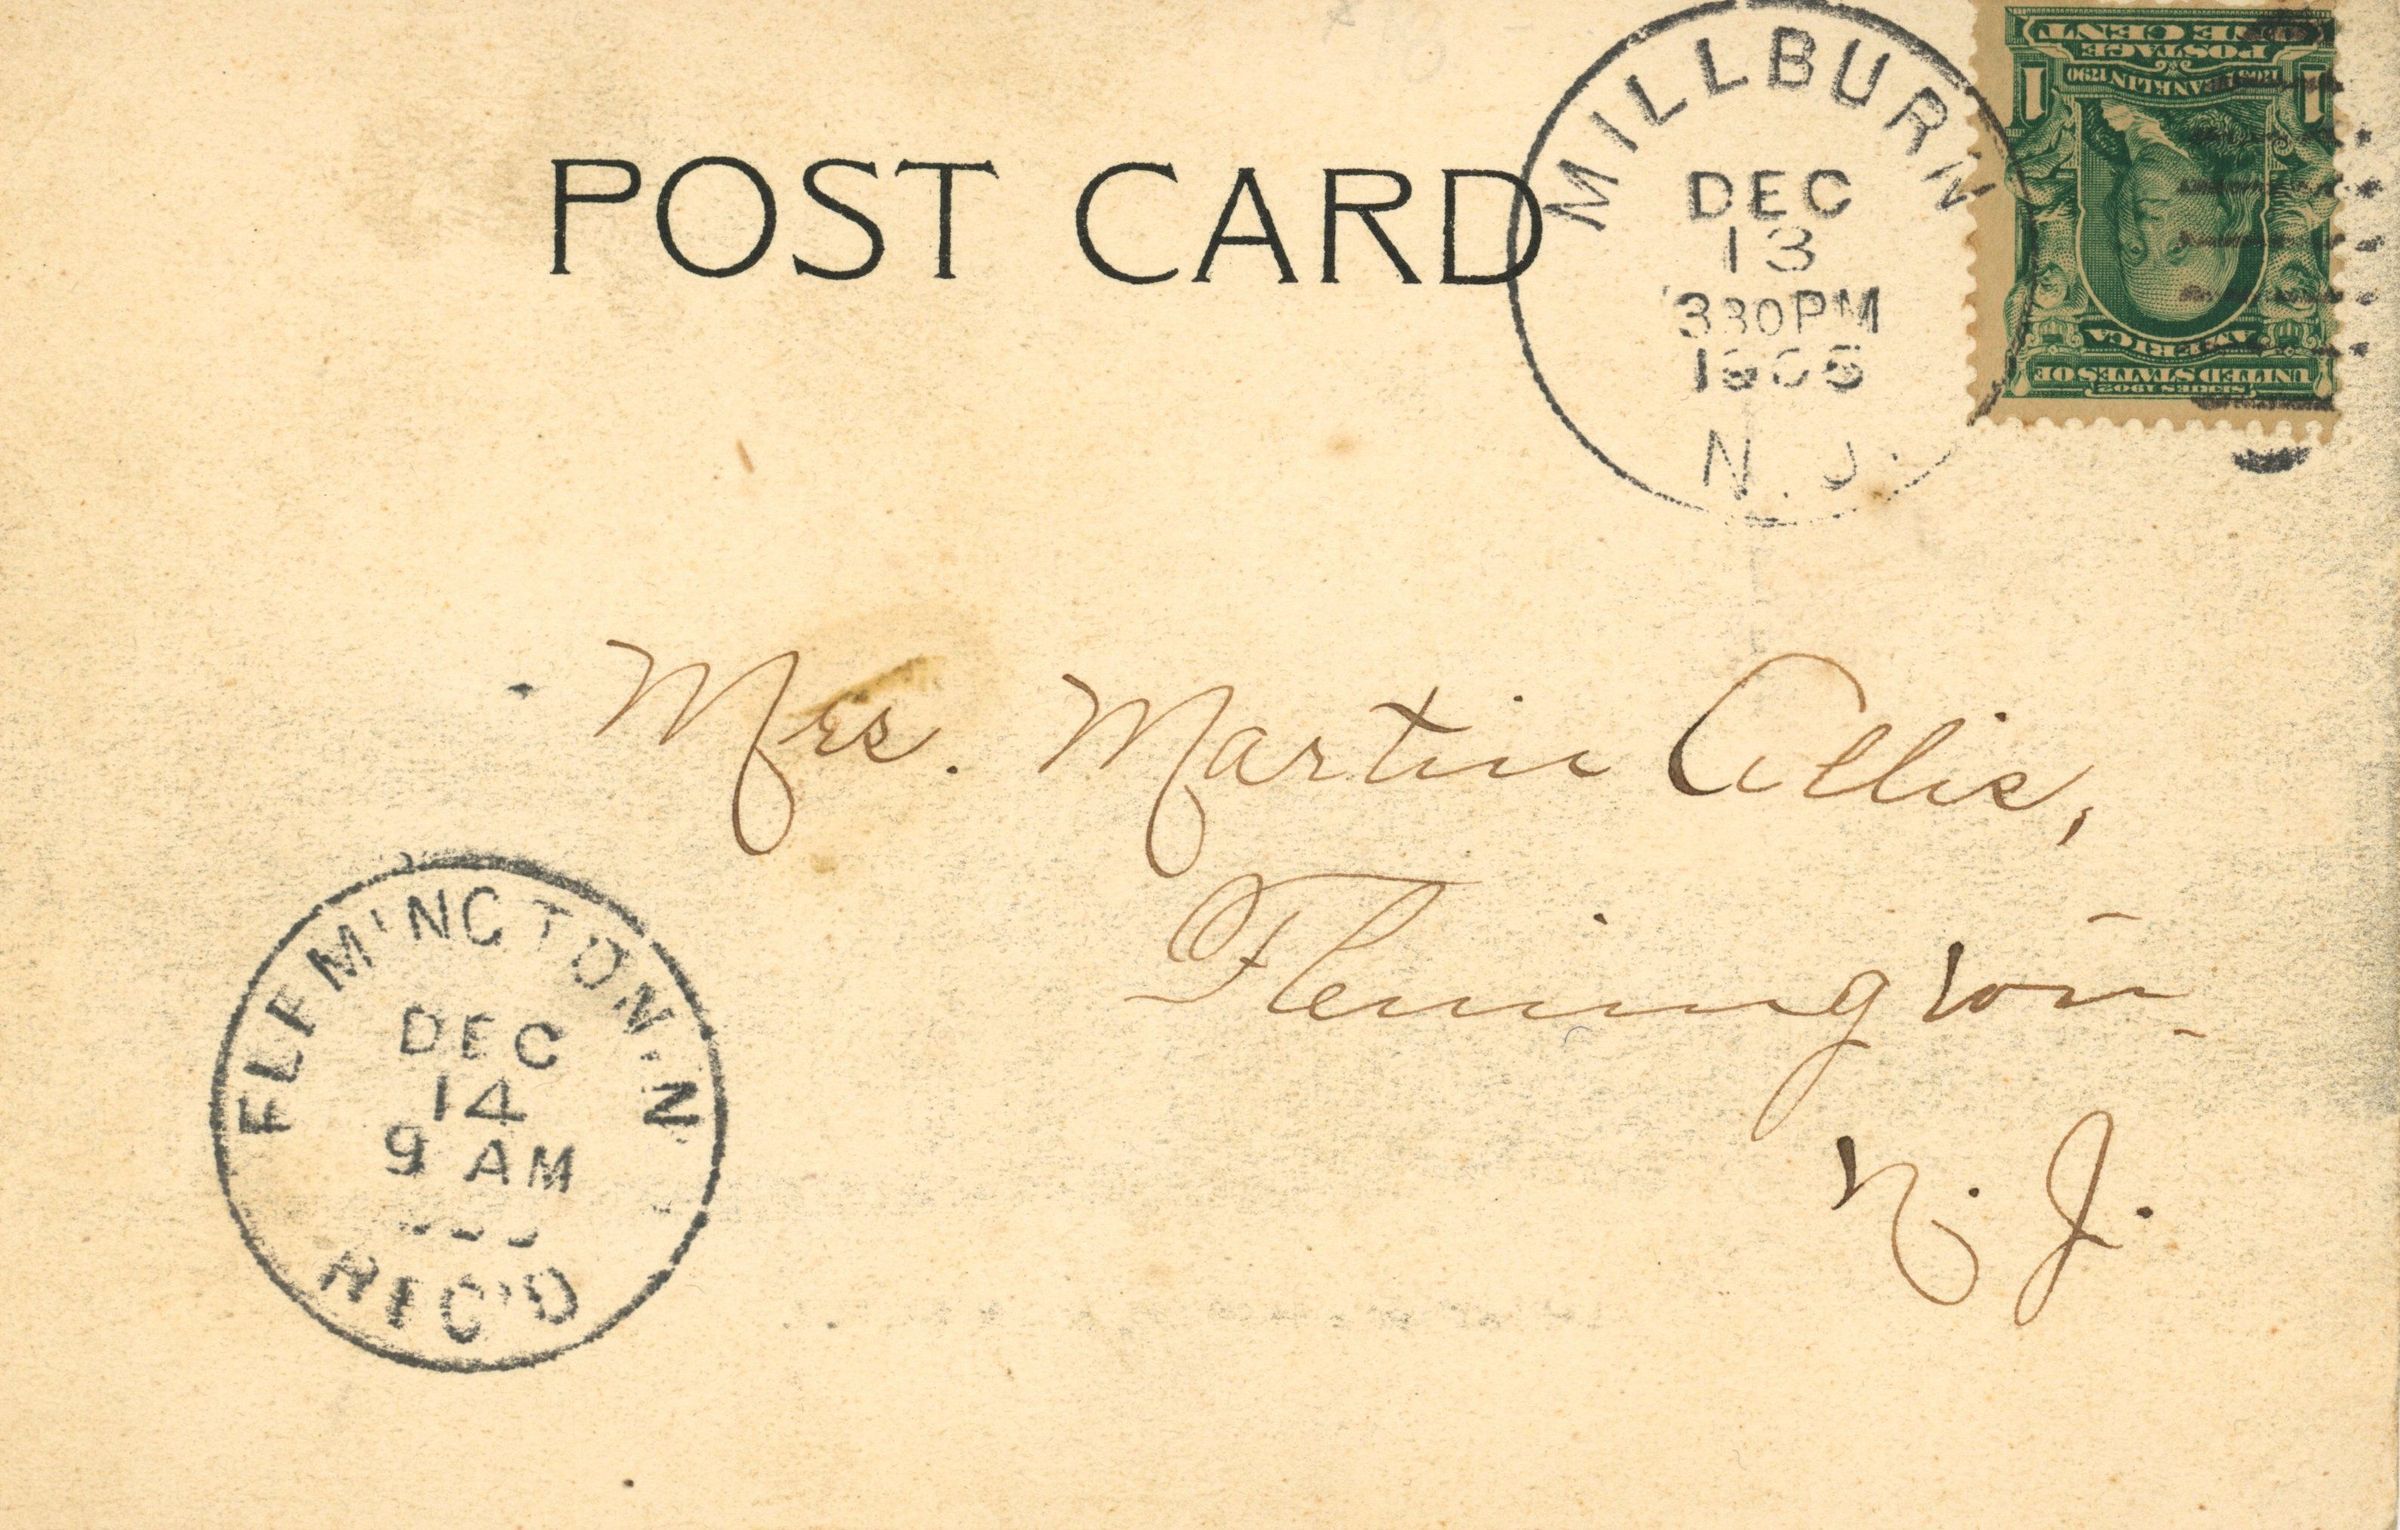 POST CARD
MILLBURN
DEC
13
330PM
1905
N.J.
ONE CENT
POSTAGE
FRANKLIN 1790
1 1
AMERICA
UNITED STATES OF
SERIES 1902
Mrs. Martin Allis,
Flemington
N. J.
FLEMINGTON N
DEC
14
9 AM
REC'D